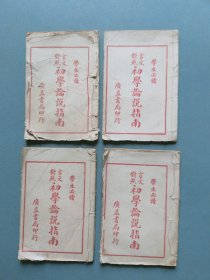 學生必讀
言文對照 初學論說指南
廣益書局印行
學生必讀
言文對照 初學論說指南
廣益書局印行
學生必讀
言文對照 初學論說指南
廣益書局印行
學生必讀
言文對照 初學論說指南
廣益書局印行